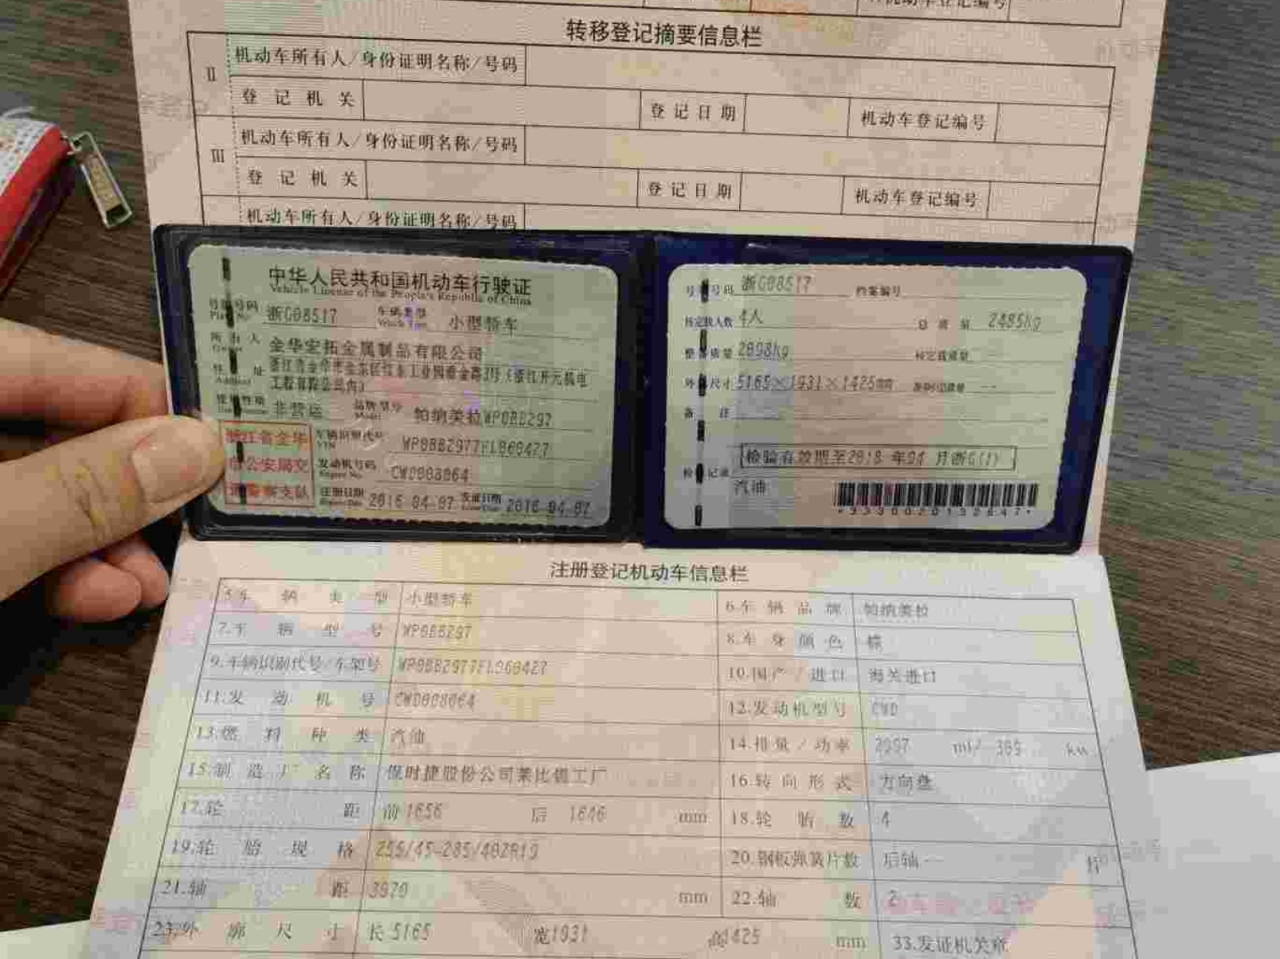 机动车登记编号
转移登记摘要信息栏
II 机动车所有人/身份证明名称/号码
登记机关 登记日期 机动车登记编号
III 机动车所有人/身份证明名称/号码
登记机关 登记日期 机动车登记编号
机动车所有人/身份证明名称/号码
中华人民共和国机动车行驶证
Vehicle License of the People's Republic of China
号牌号码 浙G08517 车辆类型 小型轿车
Plate No. Vehicle Type
所有人 金华宏拓金属制品有限公司
Owner
住址
Address 工程有限公司内)
使用性质 非营运 品牌型号 帕纳美拉WP0BB297
Model
车辆识别代号 WP0BB2977FL060427
VIN
浙江省金华
市公安局交
通警察支队
发动机号码
Engine No.
注册日期 2016-04-07 发证日期 2016-04-07
Register Date Issue Date
号牌号码 浙G08517 档案编号
核定载人数 4人 总质量 2485kg
整备质量 核定载质量 --
外廓尺寸 5165×1931×1425mm 准牵引总质量 --
备注
检验记录 检验有效期至2018年04月浙G(1)
汽油
注册登记机动车信息栏
5.车辆类型 小型轿车 6.车辆品牌 帕纳美拉
7.车辆型号 WP0BB297 8.车身颜色 棕
9.车辆识别代号/车架号 WP0BB2977FL060427 10.国产/进口 海关进口
11.发动机号 12.发动机型号 CWD
13.燃料种类 汽油 14.排量/功率 2997 ml/ kw
15.制造厂名称 保时捷股份公司莱比锡工厂 16.转向形式 方向盘
17.轮距 前1656 后 1646 mm 18.轮胎数 4
19.轮胎规格 20.钢板弹簧片数 后轴-- 片
21.轴距 mm 22.轴数 2
23.外廓尺寸 长5165 宽1931 高1425 mm 33.发证机关章